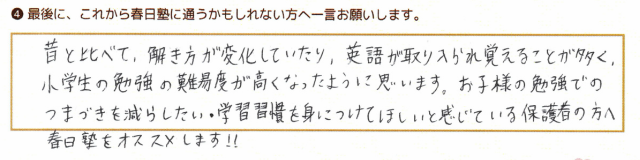 ❹ 最後に、これから春日塾に通うかもしれない方へ一言お願いします。
昔と比べて，解き方が変化していたり，英語が取り入られ覚えることが多く，
小学生の勉強の難易度が高くなったように思います。お子様の勉強での
つまづきを減らしたい・学習習慣を身につけてほしいと感じている保護者の方へ
春日塾をオススメします!!